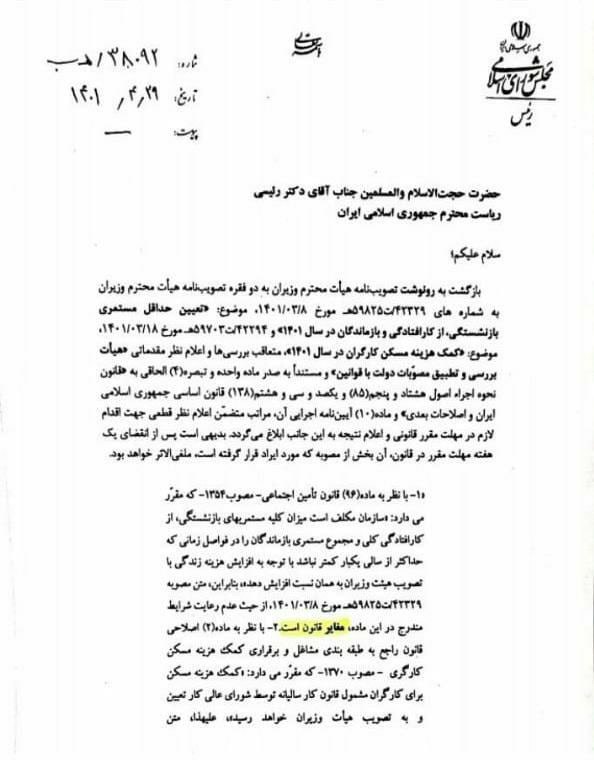 جمهوری اسلامی ایران
مجلس شورای اسلامی
رئیس
شماره: ۳۸۰۹۲/هـ ب
تاریخ: ۱۴۰۱/۴/۲۹
پیوست: —
حضرت حجت‌الاسلام والمسلمین جناب آقای دکتر رئیسی
ریاست محترم جمهوری اسلامی ایران
سلام علیکم؛
بازگشت به رونوشت تصویب‌نامه هیأت محترم وزیران به دو فقره تصویب‌نامه هیأت محترم وزیران
به شماره های ۴۲۳۲۹/ت۵۹۸۲۵هـ مورخ ۱۴۰۱/۰۳/۸، موضوع: «تعیین حداقل مستمری
بازنشستگی، از کارافتادگی و بازماندگان در سال ۱۴۰۱» و ۴۲۲۹۴/ت۵۹۷۰۳هـ مورخ ۱۴۰۱/۰۳/۱۸،
موضوع: «کمک هزینه مسکن کارگران در سال ۱۴۰۱»، متعاقب بررسی‌ها و اعلام نظر مقدماتی «هیأت
بررسی و تطبیق مصوّبات دولت با قوانین» و مستنداً به صدر ماده واحده و تبصره(۴) الحاقی به «قانون
نحوه اجراء اصول هشتاد و پنجم(۸۵) و یکصد و سی و هشتم(۱۳۸) قانون اساسی جمهوری اسلامی
ایران و اصلاحات بعدی» و ماده(۱۰) آیین‌نامه اجرایی آن، مراتب متضمّن اعلام نظر قطعی جهت اقدام
لازم در مهلت مقرر قانونی و اعلام نتیجه به این جانب ابلاغ می‌گردد. بدیهی است پس از انقضای یک
هفته مهلت مقرر در قانون، آن بخش از مصوبه که مورد ایراد قرار گرفته است، ملغی‌الاثر خواهد بود.
«۱- با نظر به ماده(۹۶) قانون تأمین اجتماعی- مصوب۱۳۵۴- که مقرّر
می دارد: «سازمان مکلف است میزان کلیه مستمریهای بازنشستگی، از
کارافتادگی کلی و مجموع مستمری بازماندگان را در فواصل زمانی که
حداکثر از سالی یکبار کمتر نباشد با توجه به افزایش هزینه زندگی با
تصویب هیئت وزیران به همان نسبت افزایش دهد»، بنابراین، متن مصوبه
۴۲۳۲۹/ت۵۹۸۲۵هـ مورخ ۱۴۰۱/۰۳/۸، از حیث عدم رعایت شرایط
مندرج در این ماده، مغایر قانون است. ۲- با نظر به ماده(۲) اصلاحی
قانون راجع به طبقه بندی مشاغل و برقراری کمک هزینه مسکن
کارگری - مصوب ۱۳۷۰- که مقرّر می دارد: «کمک هزینه مسکن
برای کارگران مشمول قانون کار سالیانه توسط شورای عالی کار تعیین
و به تصویب هیأت وزیران خواهد رسید»، علیهذا، متن